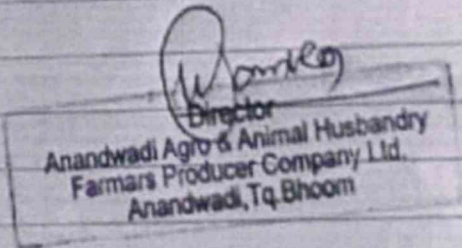 Director
Anandwadi Agro & Animal Husbandry
Farmars Producer Company Ltd.
Anandwadi,Tq.Bhoom